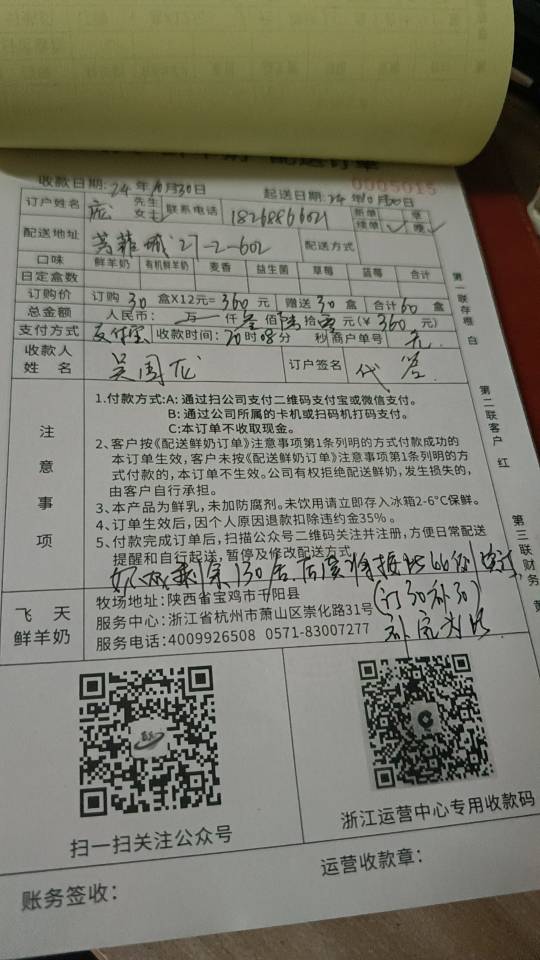 配送订单
收款日期：24年10月30日 起送日期：24年10月30日
0005015
订户姓名 庞 先生 女士✓ 联系电话 18268866021 新单 续单✓ 早 晚✓
配送地址 芳菲城27-2-602 配送方式
口味 鲜羊奶 有机鲜羊奶 麦香 益生菌 草莓 蓝莓 合计
日定盒数
订购价 订购30盒X12元=360元 赠送30盒 合计60盒
总金额 人民币： 万 仟叁佰陆拾零元(￥360元)
支付方式 支付宝 收款时间：20时08分 秒 商户单号 无
收款人姓名 吴国龙 订户签名 代签
注意事项
1.付款方式：A：通过扫公司支付二维码支付宝或微信支付。
B：通过公司所属的卡机或扫码机打码支付。
C：本订单不收取现金。
2、客户按《配送鲜奶订单》注意事项第1条列明的方式付款成功的
本订单生效，客户未按《配送鲜奶订单》注意事项第1条列明的方
式付款的，本订单不生效。公司有权拒绝配送鲜奶，发生损失的，
由客户自行承担。
3、本产品为鲜乳，未加防腐剂。未饮用请立即存入冰箱2-6°C保鲜。
4、订单生效后，因个人原因退款扣除违约金35%。
5、付款完成订单后，扫描公众号二维码关注并注册，方便日常配送
提醒和自行起送，暂停及修改配送方式
(订30补30)
补完为止
飞天鲜羊奶
牧场地址：陕西省宝鸡市千阳县
服务中心：浙江省杭州市萧山区崇化路31号
服务电话：4009926508 0571-83007277
第一联存根 白
第二联客户 红
第三联财务 黄
扫一扫关注公众号
浙江运营中心专用收款码
账务签收：
运营收款章：